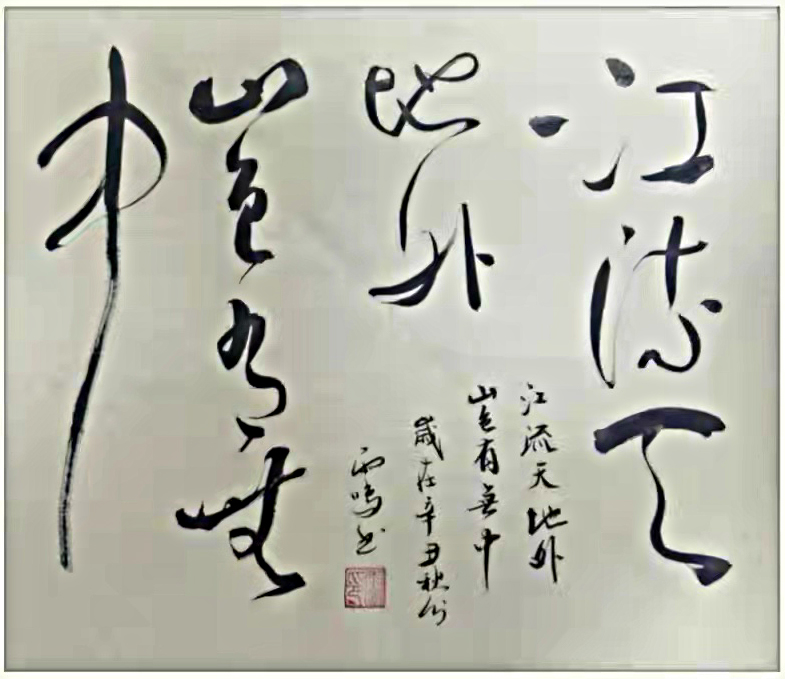 江流天
地外
山色有無
中
江流天地外
山色有無中
歲在辛丑秋
雨鳴书